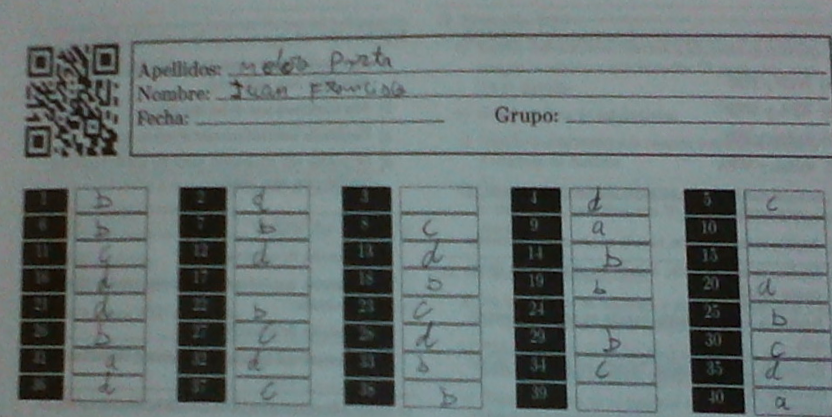 Apellidos:
Nombre: Juan Francisco
Fecha: Grupo:
1 b 2 d 3 4 d 5 c
6 b 7 b 8 c 9 a 10
11 c 12 d 13 d 14 b 15
16 d 17 18 b 19 b 20 a
21 d 22 b 23 c 24 25 b
26 b 27 c 28 d 29 b 30 c
31 a 32 d 33 b 34 c 35 d
36 d 37 c 38 b 39 40 a